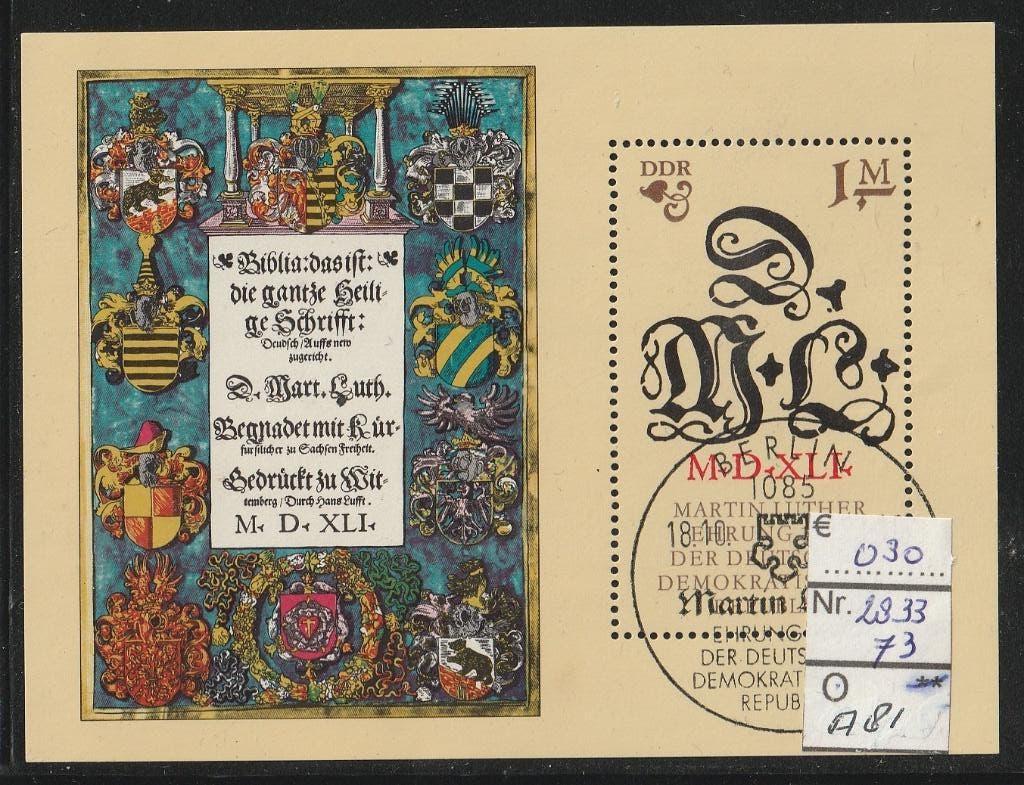 Biblia: das ist:
die gantze Heili-
ge Schrifft:
Deudsch / Auffs new
zugericht.
D. Mart. Luth.
Begnadet mit Kür-
fürstlicher zu Sachsen Freiheit.
Gedrückt zu Wit-
temberg / Durch Hans Lufft.
M. D. XLI.
DDR
1 M
D
M L
M.D.XLI.
MARTIN LUTHER
EHRUNG
DER DEUTSC
DEMOKRATIS
BERLIN
1085
18.10.
Martin
EHRUNG
DER DEUTS
DEMOKRAT
REPUB
€
030
Nr. 2833
73
O **
A81